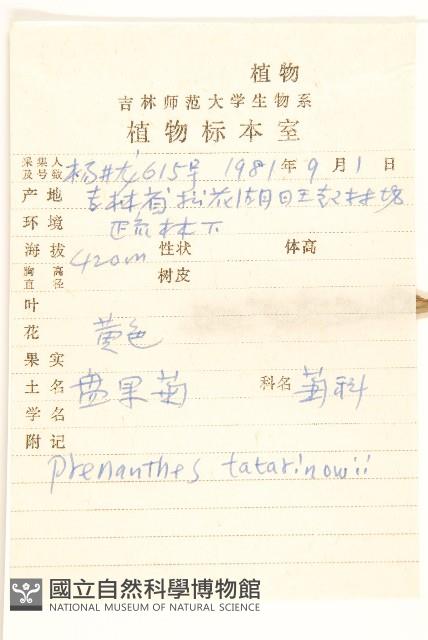 植物
吉林师范大学生物系
植物标本室
采集人及号数 杨井 615号 1981年9月1日
产地 吉林省松花湖旺起林场
环境 林下
海拔 420m 性状 体高
胸高直径 树皮
叶
花 黄色
果实
土名 盘果菊 科名 菊科
学名
附记
Prenanthes tatarinowii
國立自然科學博物館
NATIONAL MUSEUM OF NATURAL SCIENCE